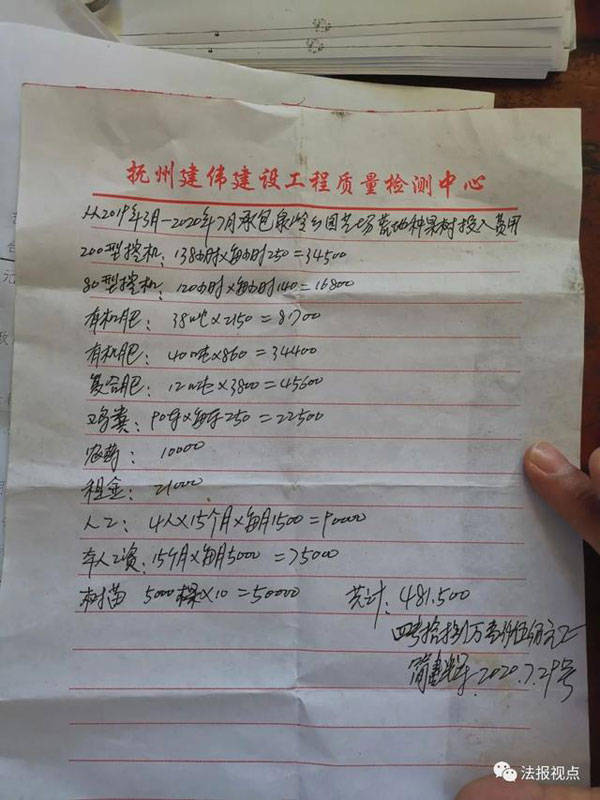 抚州建伟建设工程质量检测中心
从2019年3月—2020年7月承包泉岭乡园艺场荒地种果树投入费用
200型挖机：138小时×每小时250=34500
80型挖机：120小时×每小时140=16800
有机肥：38吨×2150=81700
有机肥：40吨×860=34400
复合肥：12吨×3800=45600
鸡粪：90车×每车250=22500
农药：10000
租金：21000
人工：4人×15个月×每月1500=90000
本人工资：15个月×每月5000=75000
树苗 5000棵×10=50000 共计：481.500
四 拾捌万壹仟伍佰元
2020.7.29号
法报视点